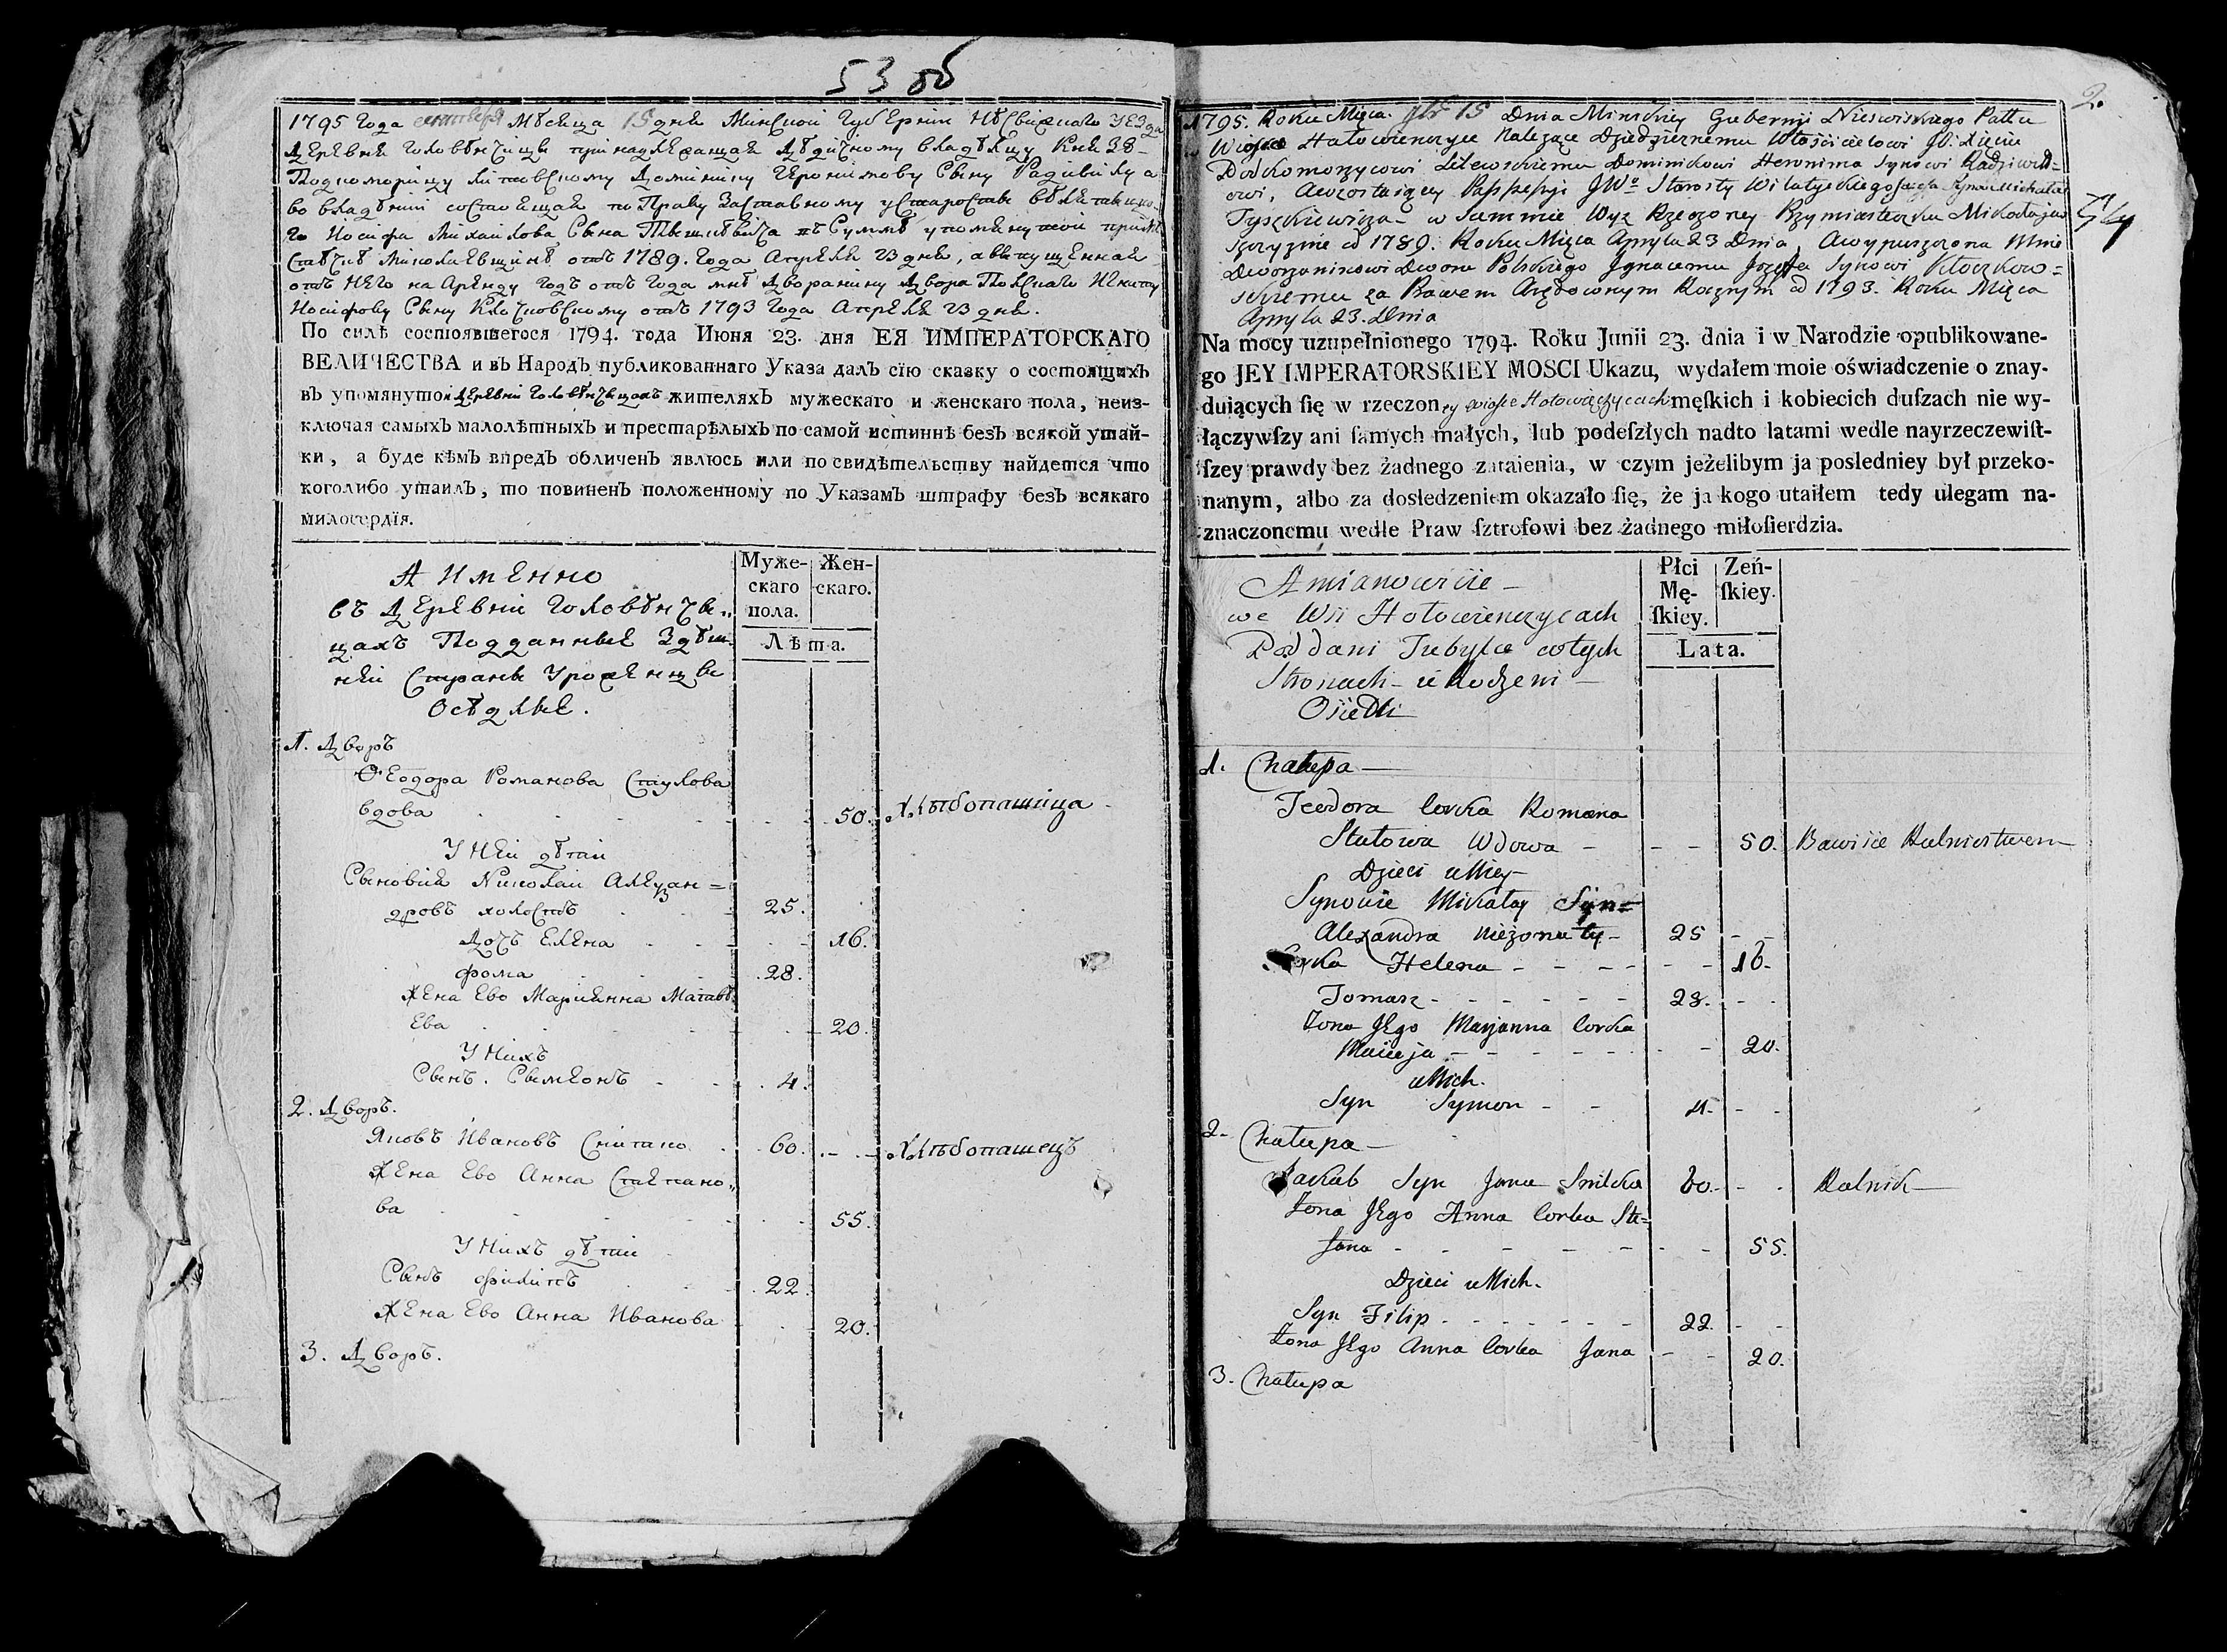 53 об
1795 года сентября мѣсяца 15 дня Минской Губерніи Несвижскаго Уезда
деревня Головѣнчицы принадлежащая дѣдичному владѣльцу Князю
Подкоморщу Литовскому Доминику Иеронимову Сыну Радивилу а
во владѣніи состоящая по Праву Заставному у Старосты
Иосифа Михайлова Сына Тышкевича в Суммѣ упомянутой при мѣ
стѣчкѣ Миколаевщинѣ отъ 1789. года Апреля 23 дня, а выпущенная
отъ него на Аренду годъ отъ года мнѣ дворянину двора Польскаго Игнату
Иосифову Сыну Клочковскому отъ 1793 года Апреля 23 дня.
По силѣ состоявшегося 1794. года Июня 23. дня ЕЯ ИМПЕРАТОРСКАГО
ВЕЛИЧЕСТВА и въ Народъ публикованнаго Указа далъ сїю сказку о состоящихъ
въ упомянутой деревни Головѣнчицахъ жителяхъ мужескаго и женскаго пола, неиз-
ключая самыхъ малолѣтныхъ и престарѣлыхъ по самой истиннѣ безъ всякой утай-
ки, а буде кѣмъ впредъ обличенъ явлюсь или по свидѣтельству найдется что
коголибо утаилъ, то повиненъ положенному по Указамъ штрафу безъ всякаго
милосердїя.
А именно
въ деревни Головѣнчи-
цахъ Подданные Здѣш-
ней Страны Уроженцы
Осѣдлые.
Муже-
скаго
пола.
Жен-
скаго.
Лѣта.
1. Дворъ
Ѳеодора Романова Стулова
вдова 50. Хлѣбопашица
У Ней дѣти
Сыновия Николай Алеѯан=
дровъ холостъ 25.
дочь Елена 16.
фома 28.
Жена Ево Марианна Матвѣ
ева 20.
У Нихъ
Сынъ. Сымеонъ 4.
2. Дворъ.
Яковъ Ивановъ Снитко 60. Хлѣбопашецъ
Жена Ево Анна Степано-
ва 55.
У Нихъ дѣти
Сынъ филипъ 22.
Жена Ево Анна Иванова 20.
3. Дворъ.
2.
1795. Roku Mięca 15 Dnia Minskiey Gubernij Nieswiskiego Pattu
Wioska Hołowienczyce Należące Dziedzicznemu Włościcielowi JO. Xięciu
Podkomorzycowi Litewskiemu Dominikowi Heronima Synowi Radziwił=
owi, Awzostaiącey Possessyi JWo Starosty Wilatyckiego Syna Michała
Tyszkiewicza w Summie Wyz Rzeczoney Przymiasteczku Mikołajew
Szczyznie od 1789. Roku Mięca Apryla 23 Dnia, Awypuszczona Mnie
Dworzaninowi Dworu Polskiego Ignacemu Jozefa Synowi Kłoczkow=
skiemu za Prawem Arędownym Rocznym od 1793. Roku Mięca
Apryla 23. Dnia
Na mocy uzupełnionego 1794. Roku Junii 23. dnia i w Narodzie opublikowane-
go JEY IMPERATORSKIEY MOSCI Ukazu, wydałem moie oświadczenie o znay-
duiących ſię w rzeczoney wiosce Hołowięczycach męſkich i kobiecich duſzach nie wy-
łączywſzy ani ſamych małych, lub podeſzłych nadto latami wedle nayrzeczewiſt-
ſzey prawdy bez żadnego zataienia, w czym jeżelibym ja posledniey był przeko-
nanym, albo za dosledzeniem okazało ſię, że ja kogo utaiłem tedy ulegam na-
znaczonemu wedle Praw ſztrofowi bez żadnego miłoſierdzia.
Amianowicie
we Wsi Hołowienczycach
Poddani Tubylce wtych
Stronach urodzeni
Osiedli
Płci
Mę-
ſkiey.
Zeń-
ſkiey.
Lata.
1. Chałupa
Teodora Corka Romana
Stułowa Wdowa 50. Bawi się Rolnictwem
Dzieci uNiey
Synowie Mikołay Syn=
Alexandra nieżonaty 25
Corka Helena 16.
Tomasz 28.
Zona Jego Maryanna Corka
Macieja 20.
uNich.
Syn Symon 4.
2. Chałupa
Jakub Syn Jana Snitka 60. Rolnik
Zona Jego Anna Corka Ste=
fana 55.
Dzieci uNich.
Syn Filip 22.
Zona Jego Anna Corka Jana 20.
3. Chałupa